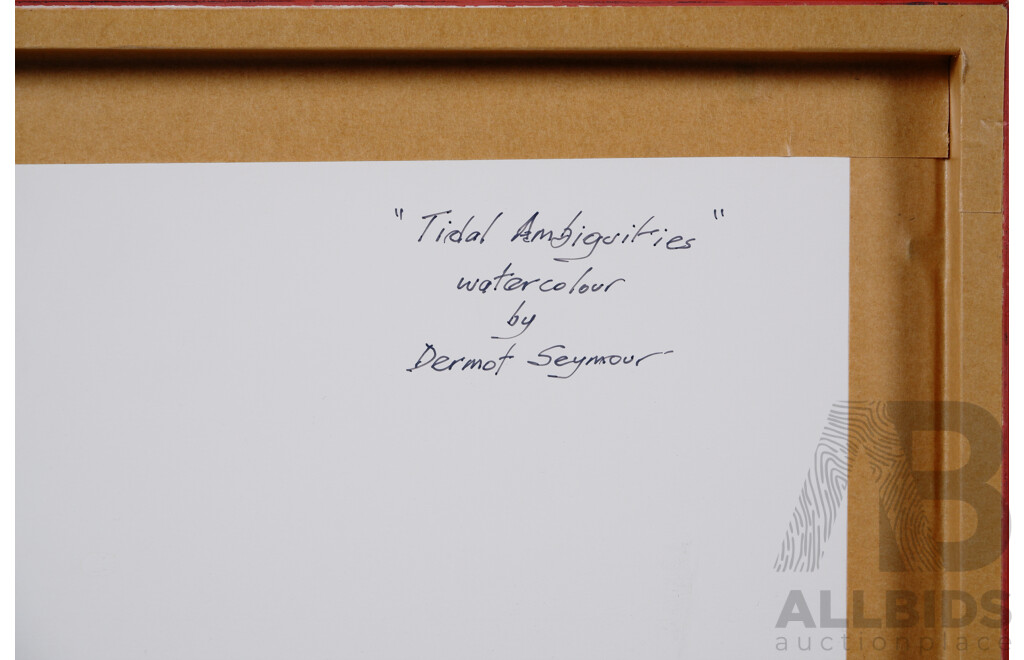 "Tidal Ambiguities"
watercolour
by
Dermot Seymour
AB
ALLBIDS
auctionplace